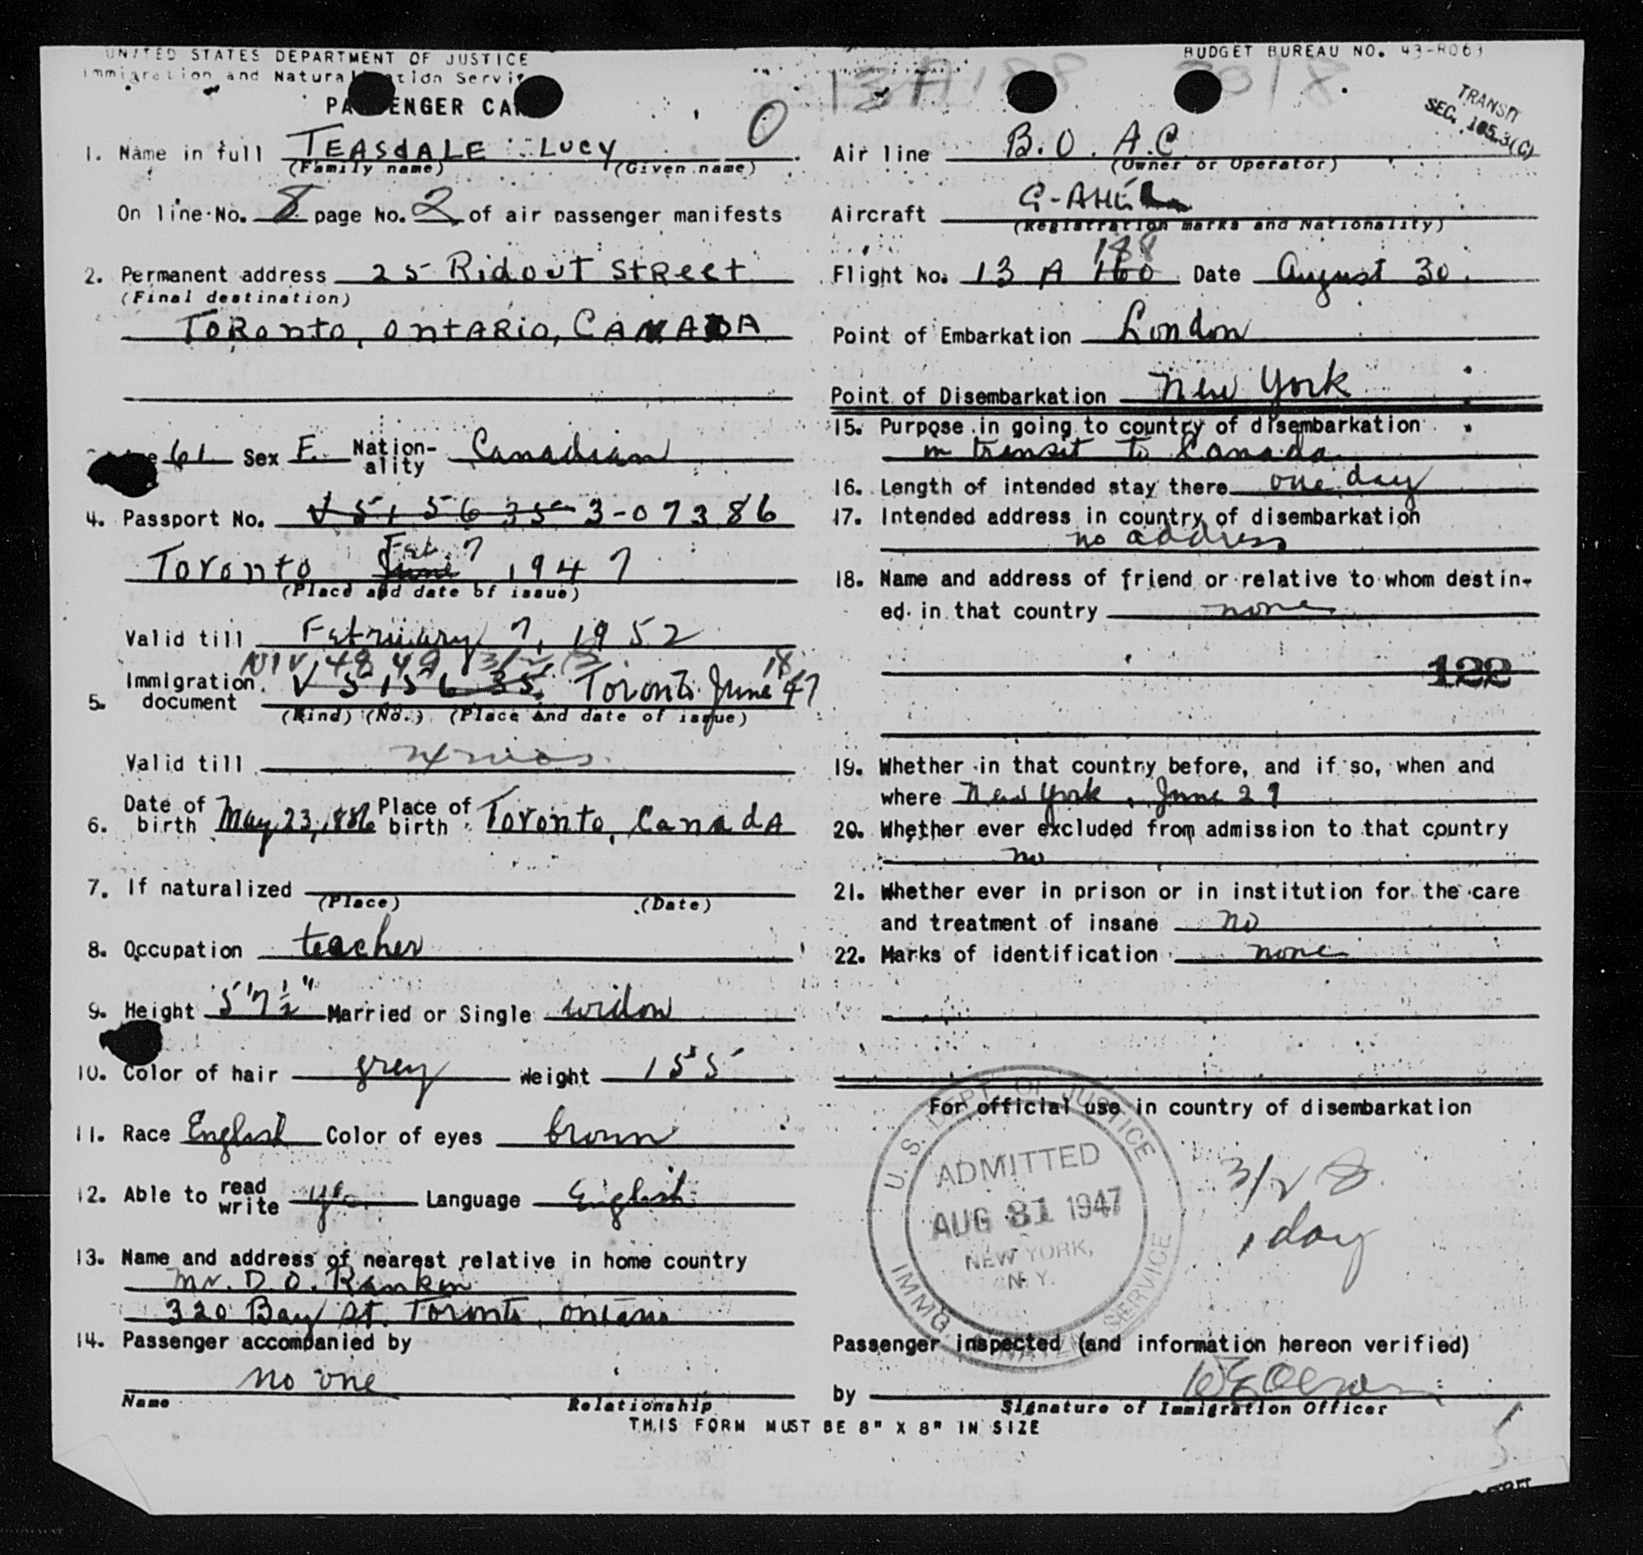 UNITED STATES DEPARTMENT OF JUSTICE
Immigration and Naturalization Service
PASSENGER CARD
BUDGET BUREAU NO. 43-R063
TRANSIT
SEC. 105.3(C)
0 13A 188
1. Name in full TEASDALE LUCY
(Family name) (Given name)
On line No. 8 page No. 2 of air passenger manifests
2. Permanent address 25 Ridout Street
(Final destination)
Toronto, Ontario, CANADA
Age 61 Sex F. Nationality Canadian
4. Passport No. V515635 3-07386
Toronto, June Feb. 7 1947
(Place and date of issue)
Valid till February 7, 1952
NIV 48 49 3/2
5. Immigration document V 515635 Toronto June 18, 47
(Kind) (No.) (Place and date of issue)
Valid till
6. Date of birth May 23, 1886 Place of birth Toronto, Canada
7. If naturalized
(Place) (Date)
8. Occupation teacher
9. Height 5'7½" Married or Single widow
10. Color of hair grey Weight 155
11. Race English Color of eyes brown
12. Able to read write yes Language English
13. Name and address of nearest relative in home country
Mr. D. O. Rankin
320 Bay St. Toronto, Ontario
14. Passenger accompanied by
no one
Name Relationship
Air line B.O.A.C
(Owner or Operator)
Aircraft G-AHE
(Registration marks and Nationality)
188
Flight No. 13 A 160 Date August 30.
Point of Embarkation London
Point of Disembarkation New York
15. Purpose in going to country of disembarkation
in transit to Canada
16. Length of intended stay there one day
17. Intended address in country of disembarkation
no address
18. Name and address of friend or relative to whom destin-
ed in that country none
122
19. Whether in that country before, and if so, when and
where New York, June 29
20. Whether ever excluded from admission to that country
no
21. Whether ever in prison or in institution for the care
and treatment of insane no
22. Marks of identification none
For official use in country of disembarkation
U. S. DEPT. OF JUSTICE
ADMITTED
AUG 31 1947
NEW YORK,
N.Y.
IMMG. NATZN. SERVICE
3/2 8.
1 day
Passenger inspected (and information hereon verified)
by
Signature of Immigration Officer
THIS FORM MUST BE 8" X 8" IN SIZE